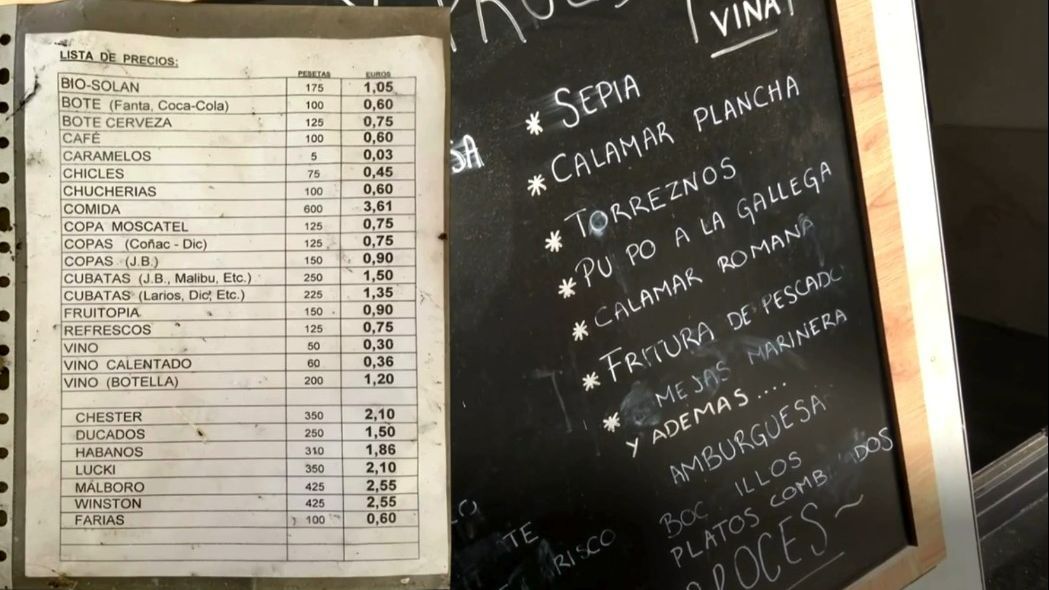 LISTA DE PRECIOS:
PESETAS EUROS
BIO-SOLAN 175 1,05
BOTE (Fanta, Coca-Cola) 100 0,60
BOTE CERVEZA 125 0,75
CAFÉ 100 0,60
CARAMELOS 5 0,03
CHICLES 75 0,45
CHUCHERIAS 100 0,60
COMIDA 600 3,61
COPA MOSCATEL 125 0,75
COPAS (Coñac - Dic) 125 0,75
COPAS (J.B.) 150 0,90
CUBATAS (J.B., Malibu, Etc.) 250 1,50
CUBATAS (Larios, Dic, Etc.) 225 1,35
FRUITOPIA 150 0,90
REFRESCOS 125 0,75
VINO 50 0,30
VINO CALENTADO 60 0,36
VINO (BOTELLA) 200 1,20
CHESTER 350 2,10
DUCADOS 250 1,50
HABANOS 310 1,86
LUCKI 350 2,10
MÁLBORO 425 2,55
WINSTON 425 2,55
FARIAS 100 0,60
VINA
* SEPIA
* CALAMAR PLANCHA
* TORREZNOS
* PU PO A LA GALLEGA
* CALAMAR ROMANA
* FRITURA DE PESCADO
* MEJAS MARINERA
Y ADEMAS....
AMBURGUESA
BOC ILLOS
PLATOS COMB ADOS